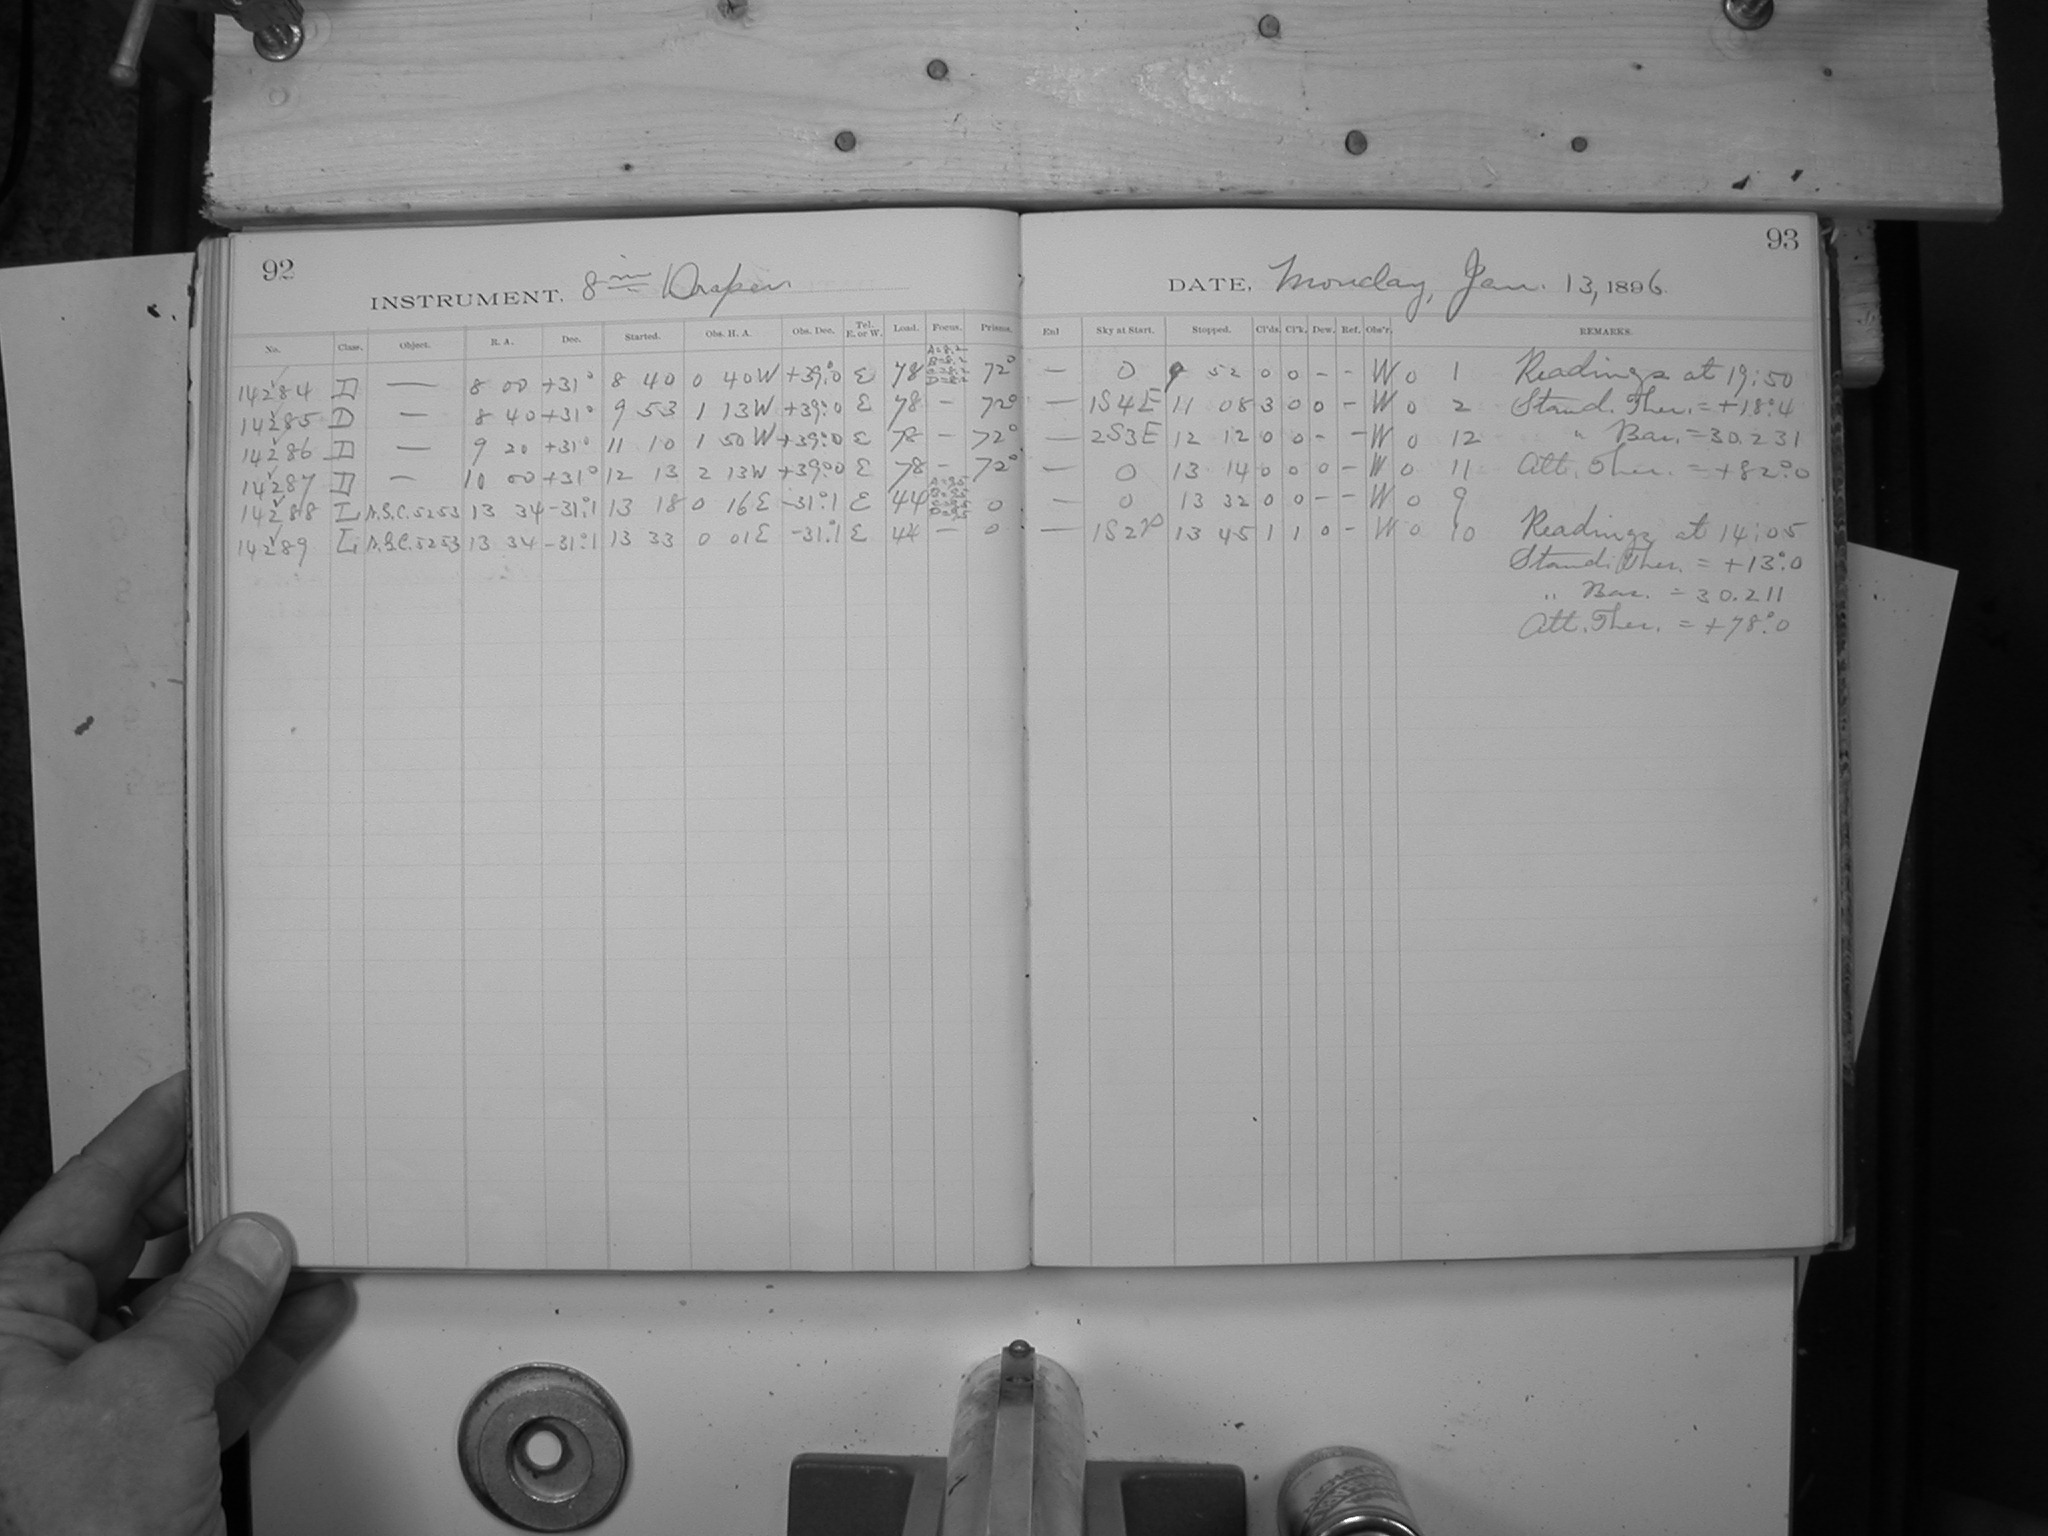 92
INSTRUMENT, 8 in Draper
No. Class. Object. R. A. Dec. Started. Obs. H. A. Obs. Dec. Tel. E. or W. Load. Focus. Prisms.
14284 D — 8 00 +31° 8 40 0 40W +39°.0 E 78 72°
14285 D — 8 40 +31° 9 53 1 13W +39°.0 E 78 - 72°
14286 D — 9 20 +31° 11 10 1 50W +39°.0 E 78 - 72°
14287 D — 10 00 +31° 12 13 2 13W +39°.0 E 78 - 72°
14288 L A.G.C. 5253 13 34 -31°.1 13 18 0 16E -31°.1 E 44 0
14289 L A.G.C. 5253 13 34 -31°.1 13 33 0 01E -31°.1 E 44 — 0
93
DATE, Monday, Jan. 13, 1896.
Enl Sky at Start. Stopped. Cl'ds. Cl'k. Dew. Ref. Obs'r. REMARKS.
— 0 9 52 0 0 - - W 0 1 Readings at 19:50
— 1S4E 11 08 3 0 0 - W 0 2 Stand. Ther. = +18°.4
— 2S3E 12 12 0 0 - - W 0 12 " Bar. = 30.231
— 0 13 14 0 0 0 - W 0 11 Att. Ther. = +82°.0
— 0 13 32 0 0 - - W 0 9
— 1S2P 13 45 1 1 0 - W 0 10 Readings at 14:05
Stand. Ther. = +13°.0
" Bar. = 30.211
Att. Ther. = +78°.0